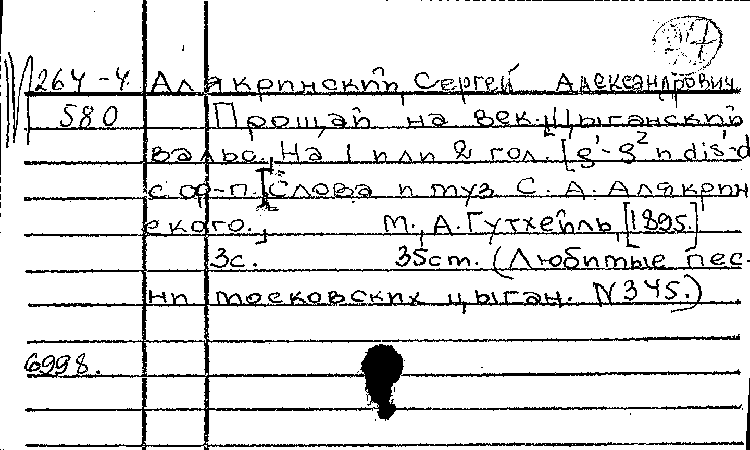 264-4 Алякринский, Сергей Александрович
580 Прощай на век. Цыганский
вальс. На 1 или 2 гол. [g¹-g² и dis¹-d
с ф-п.] Слова и муз С. А. Алякрин
ского. М., А. Гутхейль, [1895.]
3с. 35cm. (Любимые пес-
ни московских цыган. N 345.)
6998.